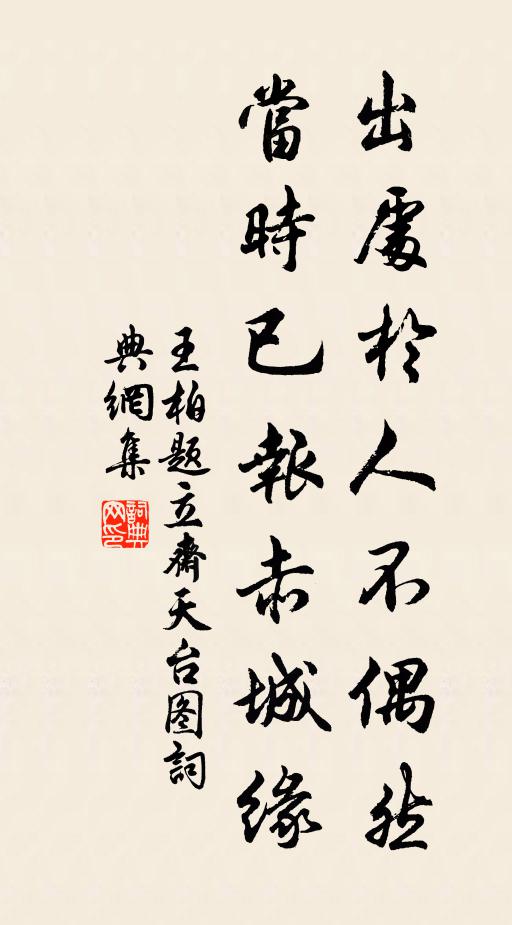 出處於人不偶然
當時已報赤城緣
王柏題立齋天台图詞
典網集
詞典网印